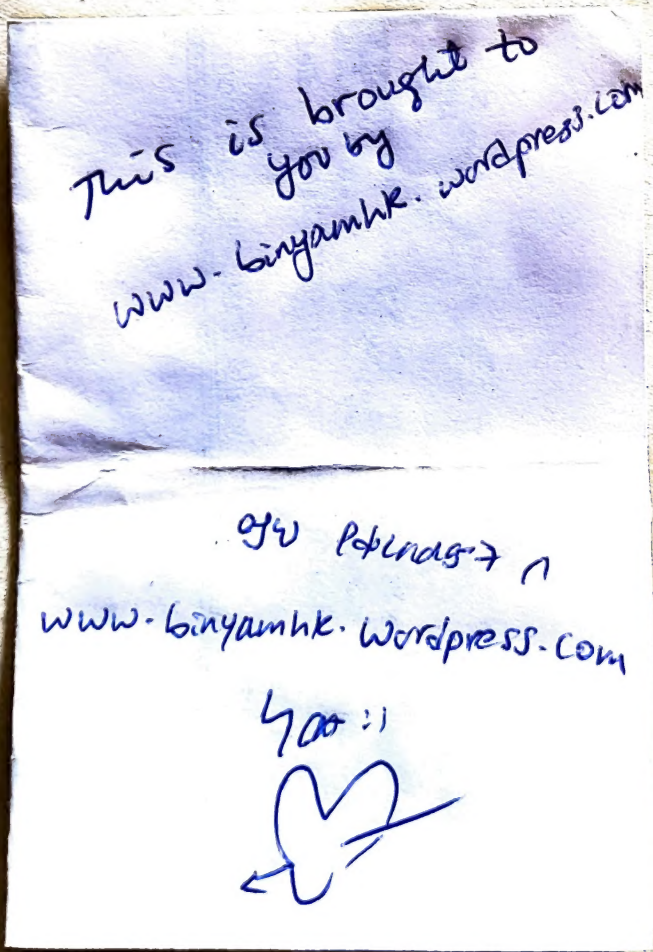 This is brought to
you by
www.binyamhk.wordpress.com
በ
www.binyamhk.wordpress.com
ነው ።